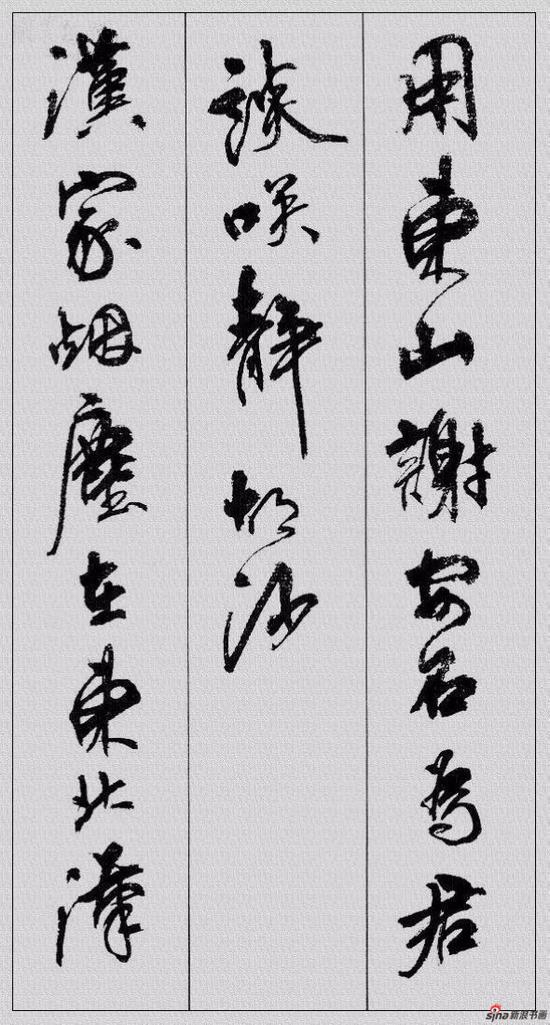 用東山謝安石為君
談咲静胡沙
漢家烟塵在東北漢
sina新浪书画